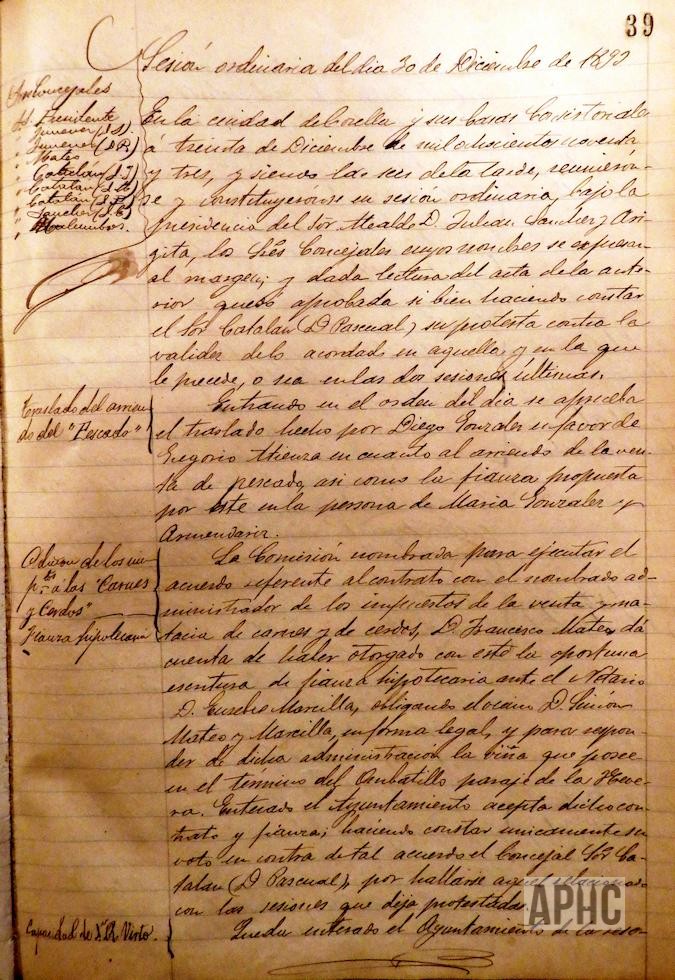 39
Sesión ordinaria del dia 30 de Diciembre de 1893
Sres Concejales
Sr. Presidente
" Jimenez (D. J.)
" Jimenez (D. R)
" Mateo
" Catalán (D. J)
" Catalán (D. A)
" Catalán (D. P.)
" Sanchez (D. C)
"
En la ciudad de Corella y sus Casas Consistoriales
á treinta de Diciembre de mil ochocientos noventa
y tres, y siendo las seis de la tarde, reunieron-
se y constituyeronse en sesión ordinaria, bajo la
presidencia del Sor Alcalde D. Julian Sanchez y Ari-
gita, los Sres Concejales cuyos nombres se expresan
al margen; y dada lectura del acta de la ante-
rior quedó aprobada si bien haciendo constar
el Sor Catalan (D. Pascual) su protesta contra la
validez de lo acordado en aquella y en la que
le precede, o sea en las dos sesiones últimas.
Traslado del arrien-
do del "Pescado"
Entrando en el orden del dia se aprueba
el traslado hecho por Diego Gonzalez en favor de
Gregorio Atienza en cuanto al arriendo de la ven-
ta de pescado, asi como la fianza propuesta
por este en la persona de Maria Gonzalez y
Armendariz.
de los im-
ptos á las "Carnes
y Cerdos"
Fianza hipotecaria
La Comisión nombrada para ejecutar el
acuerdo referente al contrato con el nombrado ad-
ministrador de los impuestos de la venta y ma-
tacia de carnes y de cerdos, D. Francisco Mateo, dá
cuenta de haber otorgado con este la oportuna
escritura de fianza hipotecaria ante el Notario
D. Eusebio Marcilla, obligando el vecino D. Simón
Mateo y Marcilla, en forma legal, y para respon-
der de dicha administración la viña que posee
en el término del Ombatillo paraje de la
Enterado el Ayuntamiento acepta dicho con-
trato y fianza; haciendo constar unicamente su
voto en contra de tal acuerdo el Concejal Sor Ca-
talan (D. Pascual), por hallarse aquel relacionado
con las sesiones que deja protestadas.
Capacidad de Dn R. Virto.
Queda enterado el Ayuntamiento de la reso-
APHC